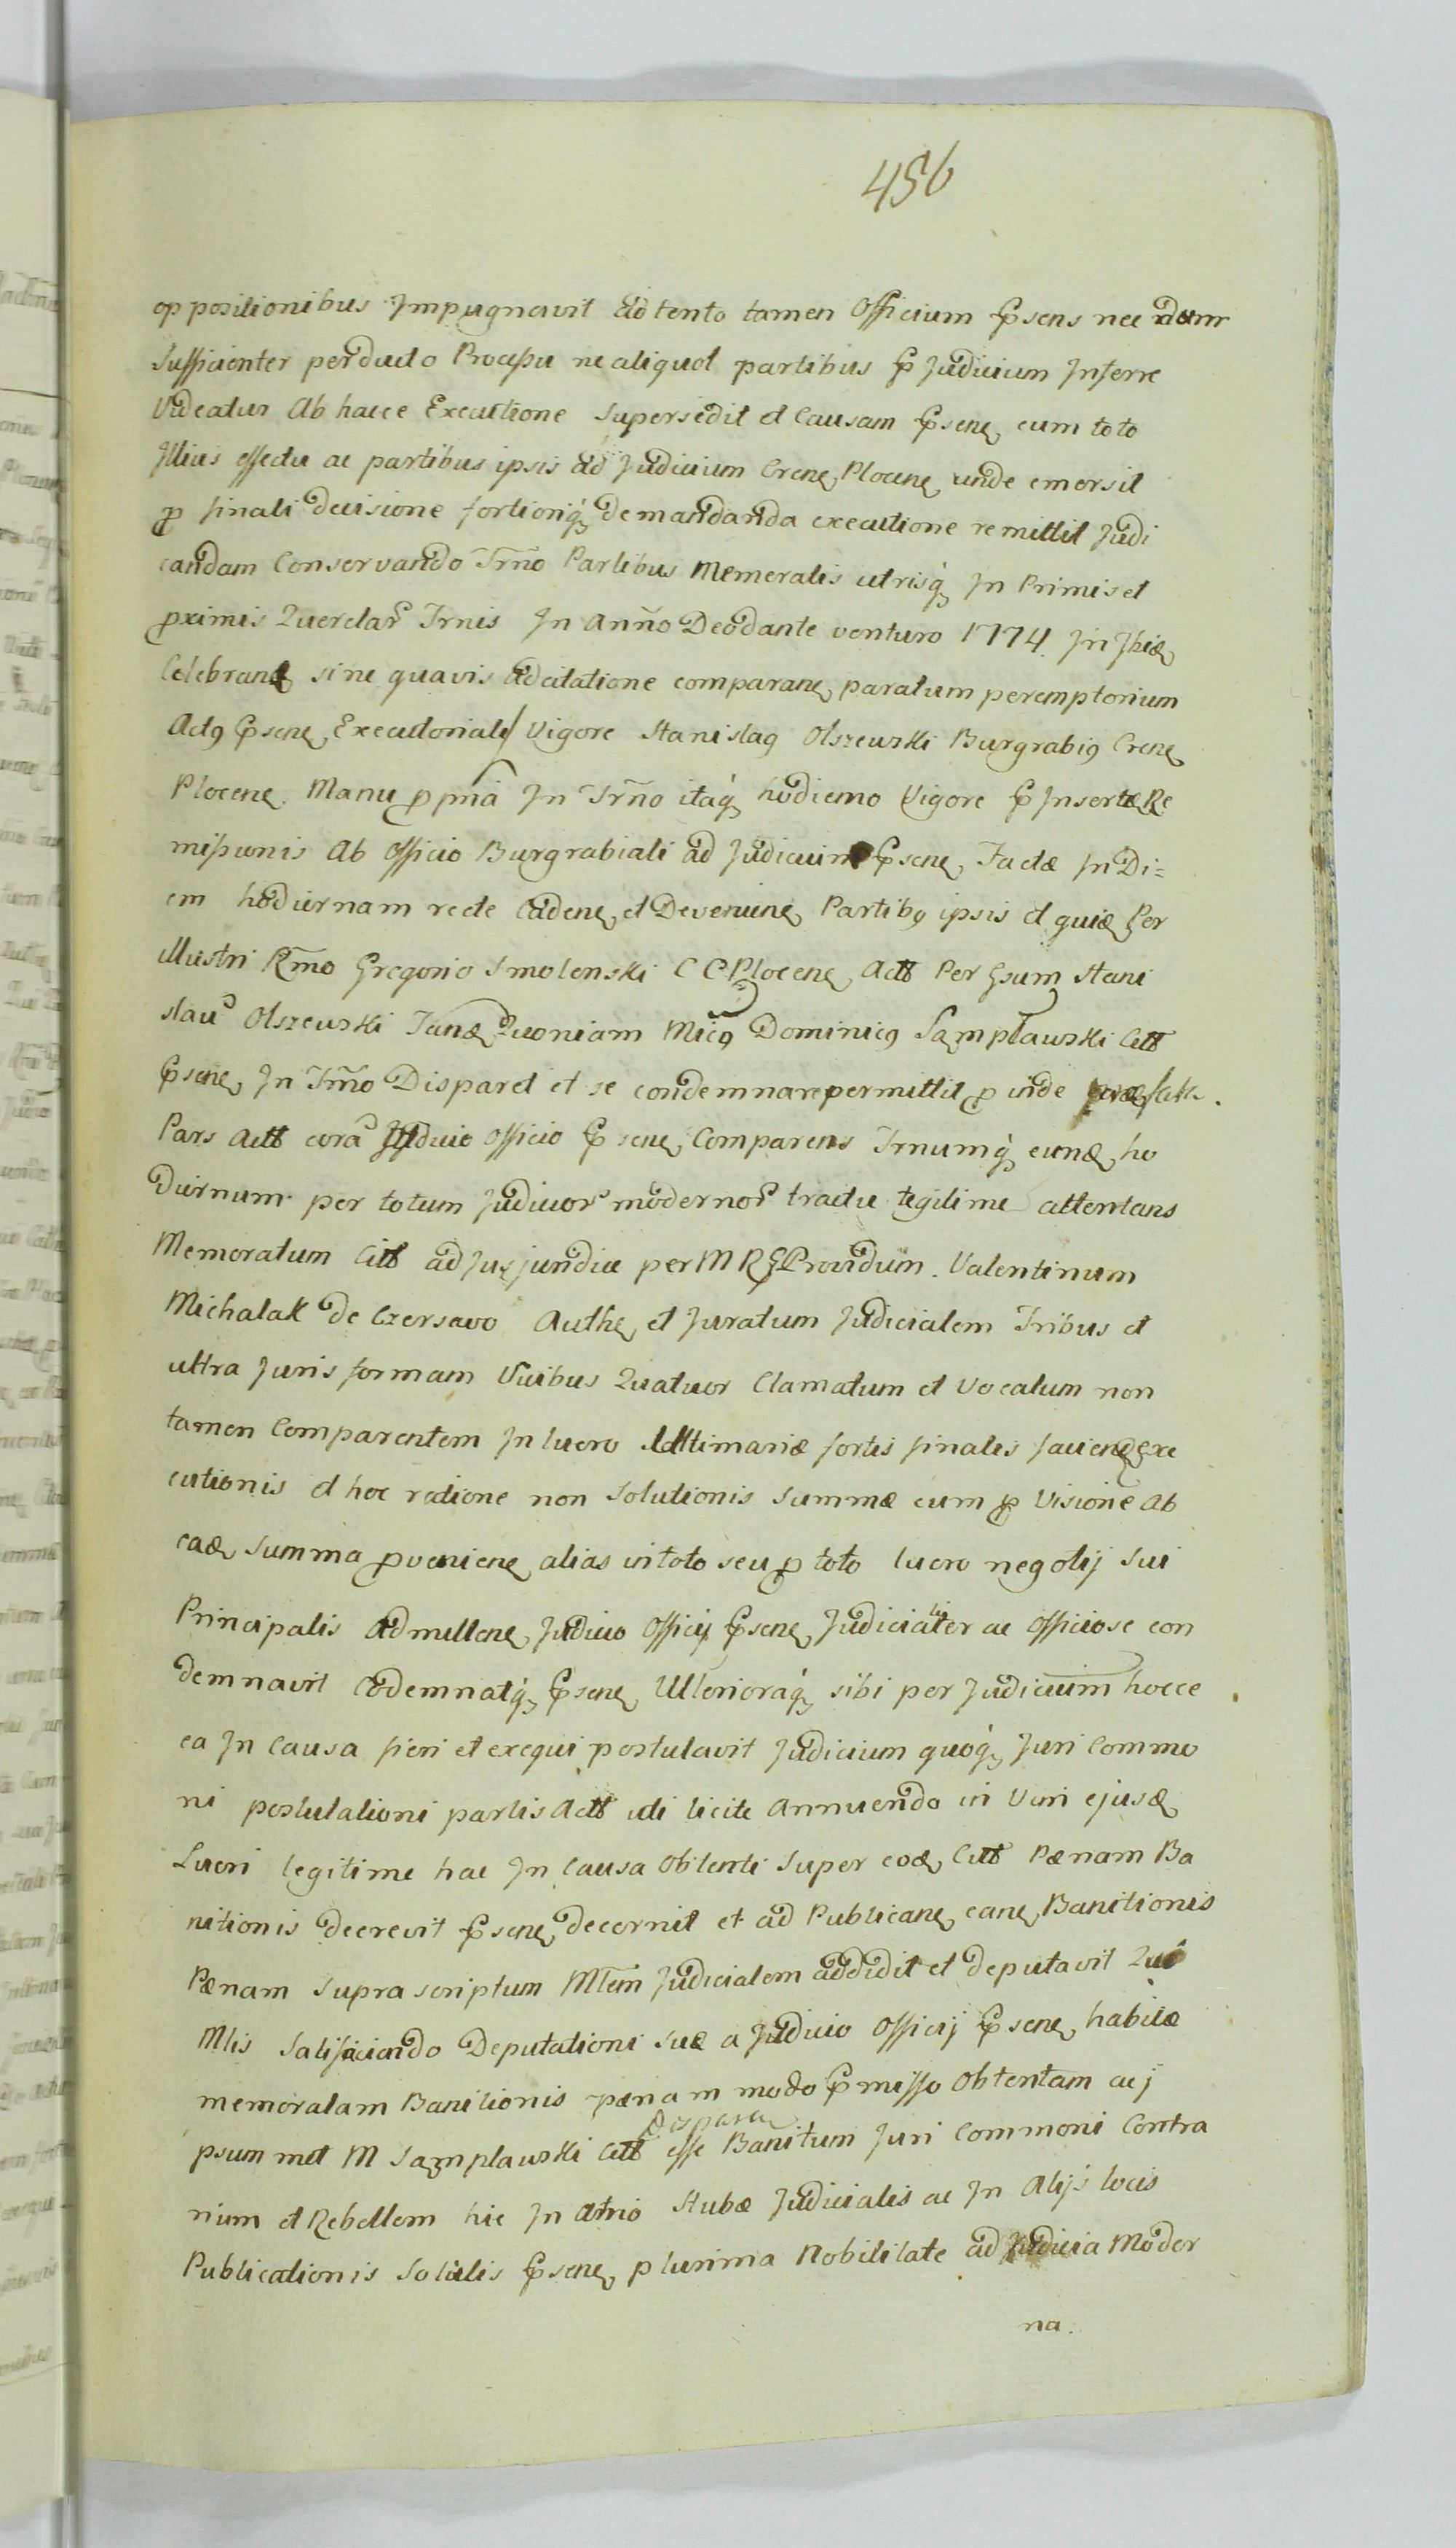 456
oppositionibus Impugnavit Adtento tamen Officium Psens nec dum
Sufficienter perducto Processu ne aliquot partibus P Judicium Inferre
Videatur Ab hacce Executione Supersedit et Causam Psene cum toto
Illius effectu ac partibus ipsis ad Judicium Crene Plocene unde emersit
p finali decisione fortioriq demandanda executione remittit Judi
candam Conservando Trno Partibus Memoratis utrisq In Primis et
pximis Querelar Trnis In Anno Deodante venturo 1774 In
Celebrane sine quavis Adcitatione comparane paratum peremptorium
Actq Psene Executoriale Vigore Stanislaq Olszewski Burgrabiq Crene
Plocene Manu ppria In Trno itaq hodierno Vigore P Insertæ Re
missionis Ab Officio Burgrabiali ad Judicium Psene Factæ In Di=
em hodiernam recte Cadene et Devenine Partibq ipsis et quiæ Per
illustri Rmo Gregorio Smolenski C C Plocene Actt Per Gsum Stani
slau Olszewski Quoniam Micq Dominicq Sąmpławski Citt
Psene In Trno Disparet et se condemnare permittit p inde
Pars Actt cora Judicio Officio Psene Comparens Trnumq eunæ ho
diernum per totum Judicior modernor tractu legitime attentans
Memoratum Citt ad Jus juridice per M R G Providum Valentinum
Michalak de Czersewo Authe et Juratum Judicialem Tribus et
ultra Juris formam Vicibus Quatuor Clamatum et Vocatum non
tamen Comparentem In lucro Ultimariæ fortis finalis faciene Exe
cutionis et hoc ratione non Solutionis Summæ cum p Visione Ab
eaæ Summa pveniene alias in toto seu p toto lucro negotij Sui
Principalis Admittene Judicio Officij Psene Judicialiter ac Officiose con
demnavit Codemnatq Psene Ulterioraq sibi per Judicium hocce
ea In Causa fieri et exequi postulavit Judicium quoq Juri Commu
ni postulationi partis Actt uti licite Annuendo in Vim ejusæ
Lucri legitime hac In Causa Obtenti Super eoæ Citt Pænam Ba
nitionis decrevit Psene decernit et ad Publicane eane Banitionis
Pænam Supra scriptum Mlem Judicialem addidit et deputavit Qui
Mlis Satisfaciendo Deputationi Suæ a Judicio Officij Psene habitæ
memoratam Banitionis pænam modo Pmisso Obtentam ac j
psummet M Sąmpławski Citt esse Banitum Juri Commoni Contra
nium et Rebellem hic In Atrio Stubæ Judicialis ac In Alijs locis
Publicationis Solitis Psene plurima Nobilitate ad Judicia Moder
na.